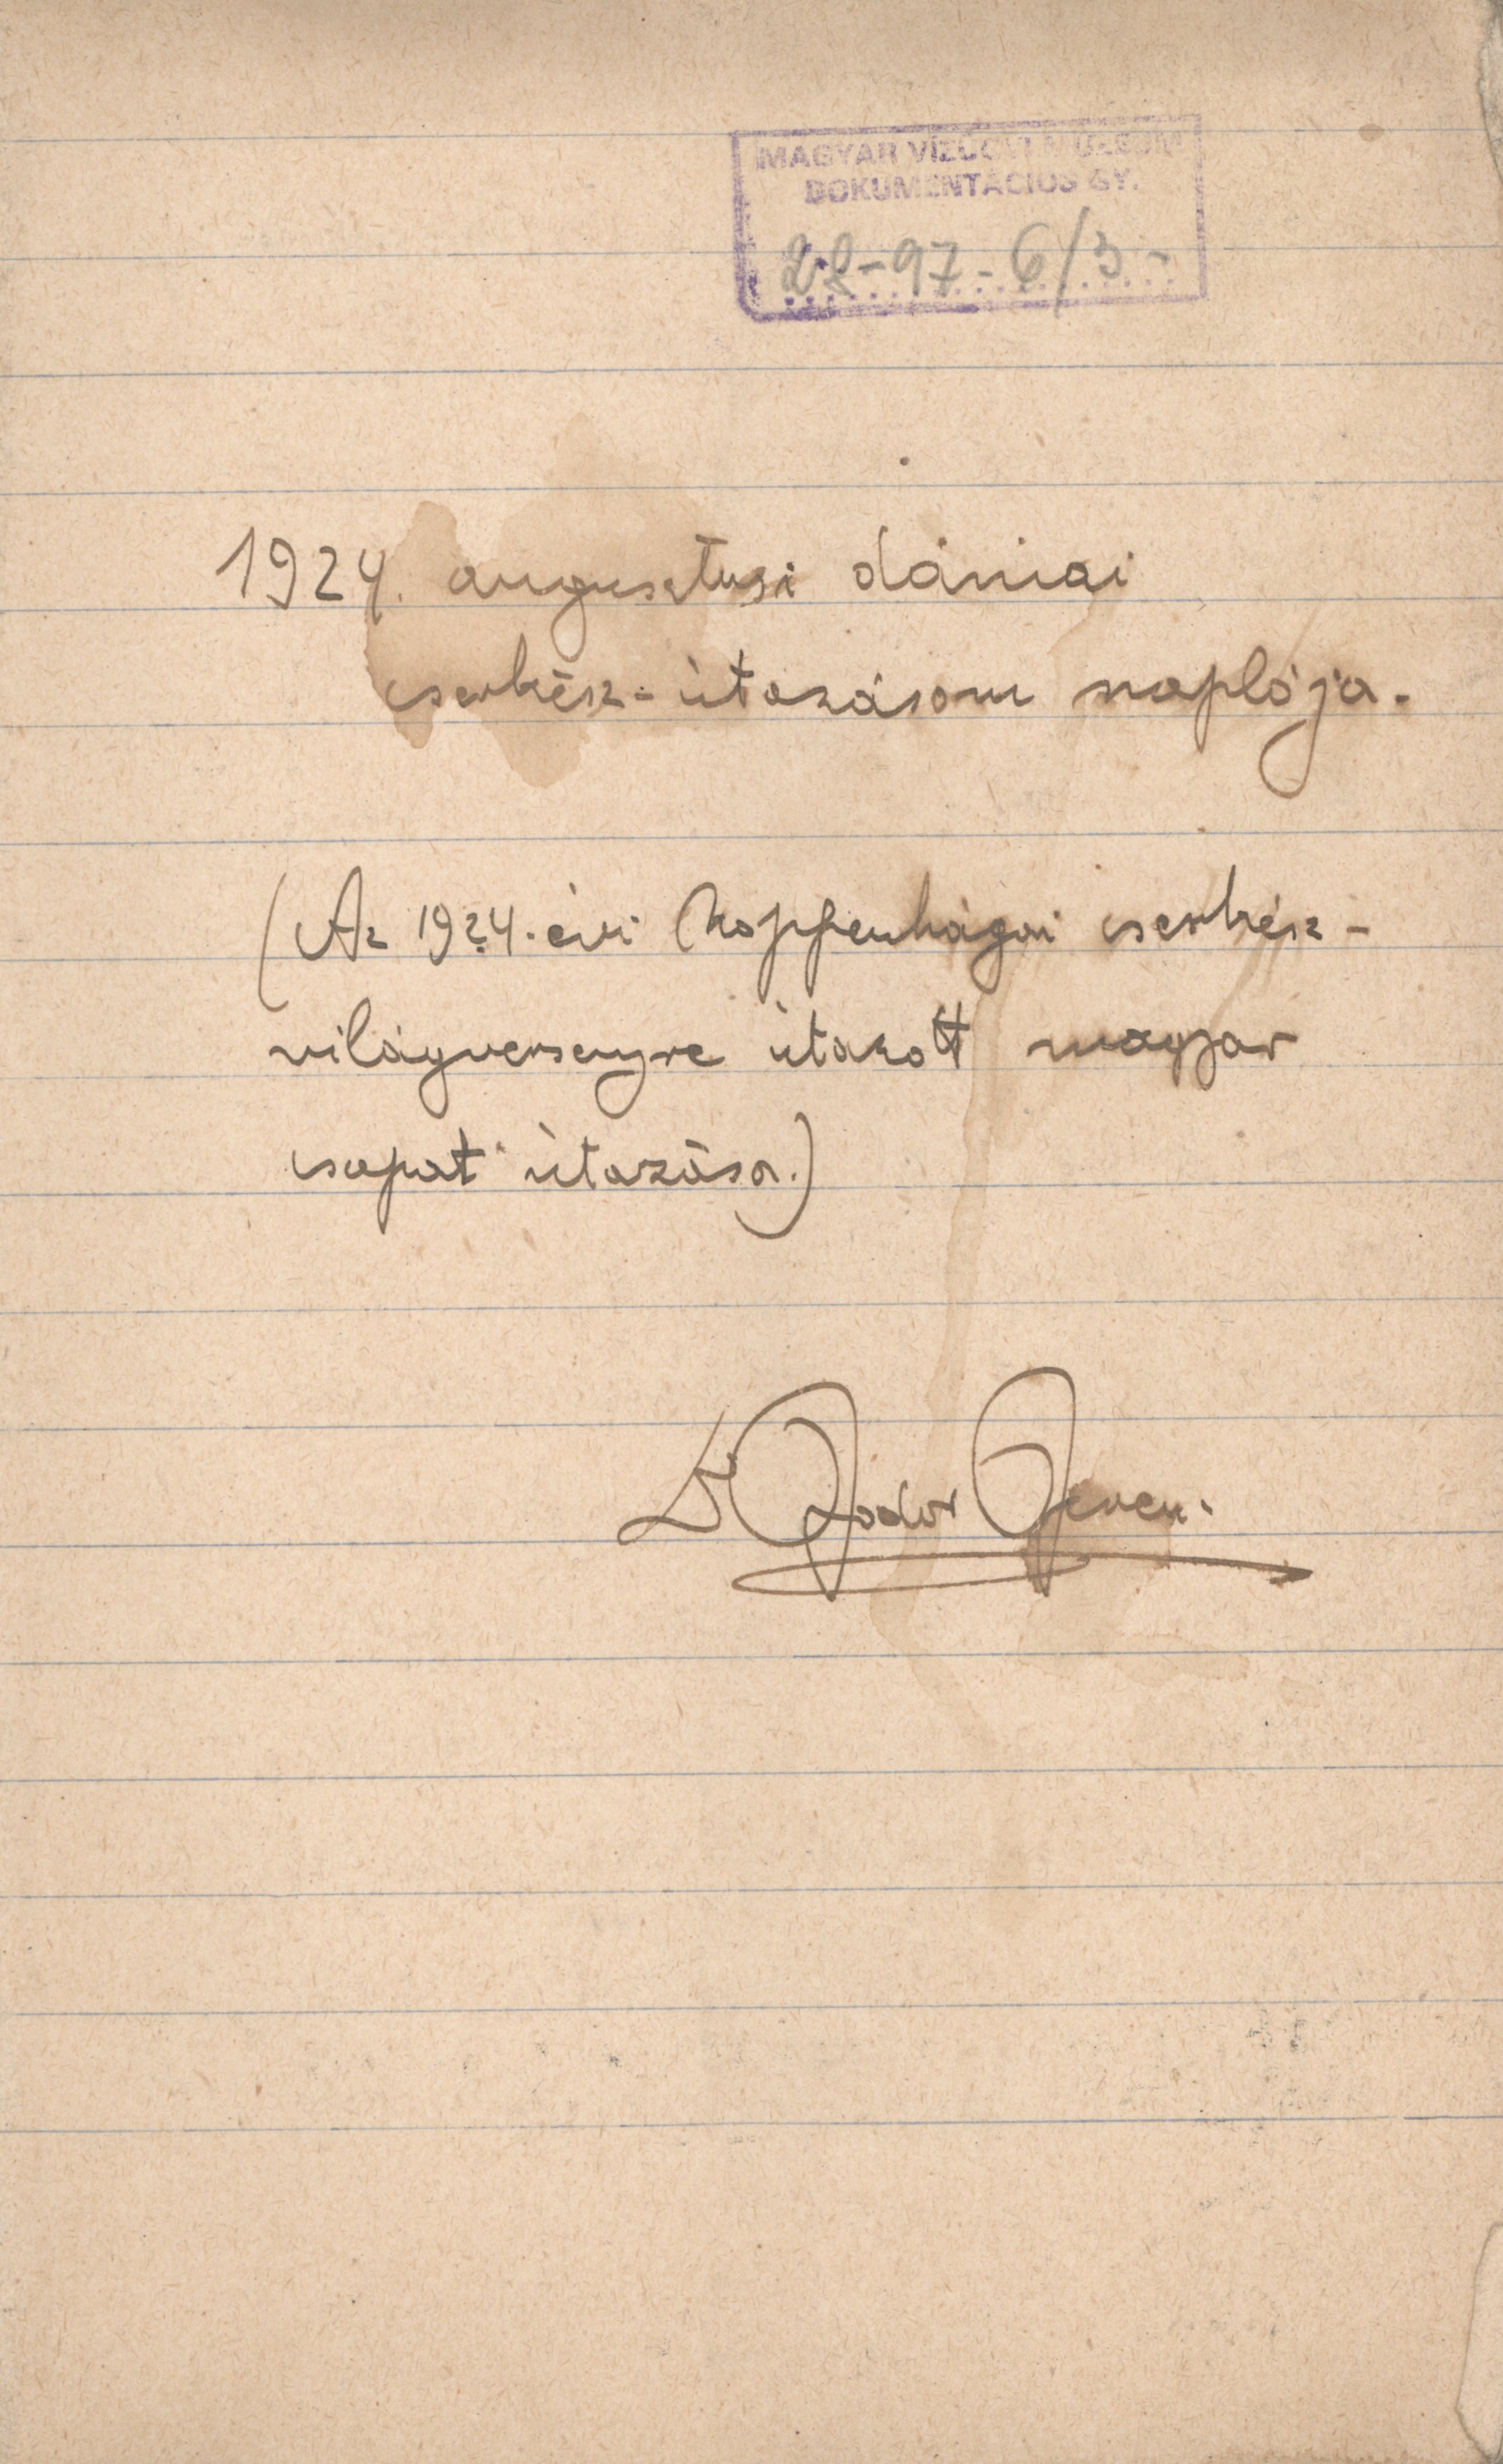 MAGYAR VÍZÜGYI MÚZEUM
DOKUMENTÁCIÓS GY.
22-97-6/3-
1924. augusztusi dániai
cserkész-útazásom naplója.
(Az 1924. évi koppenhágai cserkész-
világversenyre útazott magyar
csapat útazása.)
Dr Fodor Ferenc.